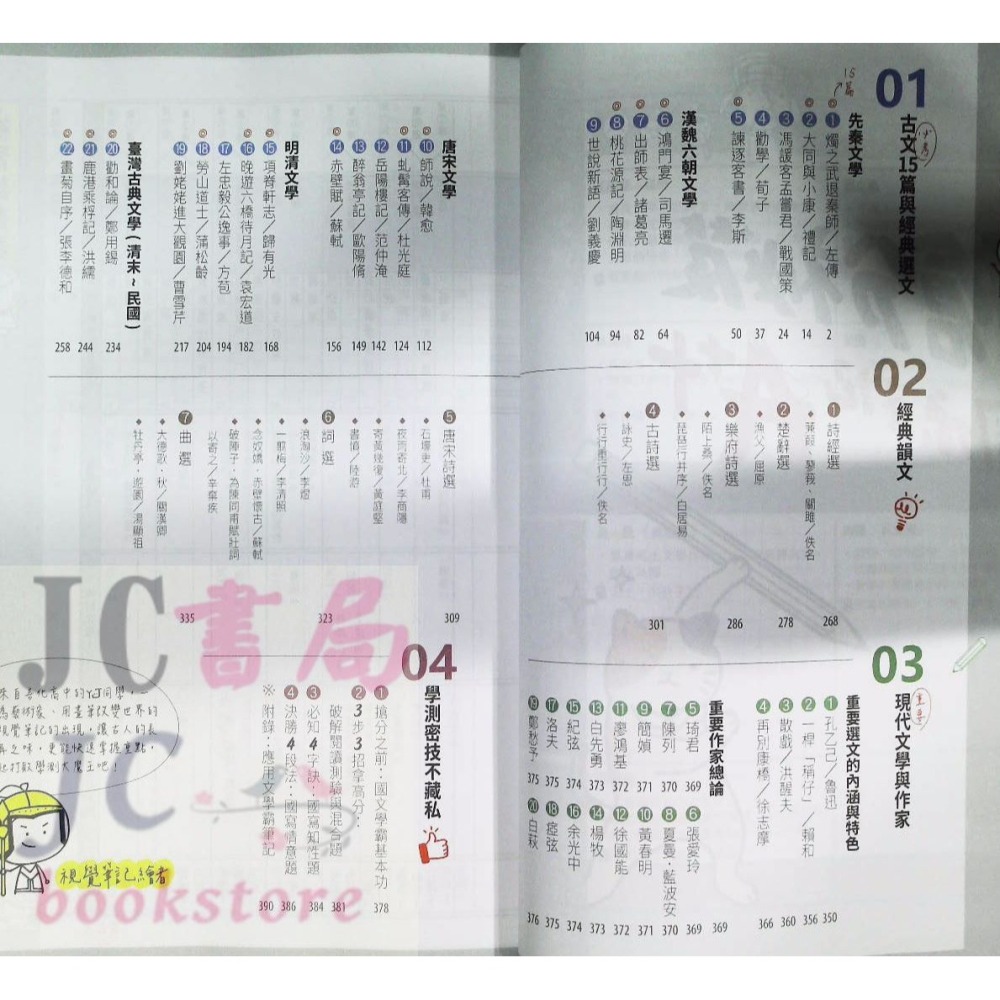 01
古文15篇與經典選文
15篇
先秦文學
1 燭之武退秦師／左傳 2
2 大同與小康／禮記 14
3 馮諼客孟嘗君／戰國策 24
4 勸學／荀子 37
5 諫逐客書／李斯 50
漢魏六朝文學
6 鴻門宴／司馬遷 64
7 出師表／諸葛亮 82
8 桃花源記／陶淵明 94
9 世說新語／劉義慶 104
唐宋文學
10 師說／韓愈 112
11 虬髯客傳／杜光庭 124
12 岳陽樓記／范仲淹 142
13 醉翁亭記／歐陽脩 149
14 赤壁賦／蘇軾 156
明清文學
15 項脊軒志／歸有光 168
16 晚遊六橋待月記／袁宏道 182
17 左忠毅公逸事／方苞 194
18 勞山道士／蒲松齡 204
19 劉姥姥進大觀園／曹雪芹 217
臺灣古典文學（清末~民國）
20 勸和論／鄭用錫 234
21 鹿港乘桴記／洪繻 244
22 畫菊自序／張李德和 258
02
經典韻文
1 詩經選 268
◆ 蒹葭、蓼莪、關雎／佚名
2 楚辭選 278
◆ 漁父／屈原
3 樂府詩選 286
◆ 陌上桑／佚名
◆ 琵琶行并序／白居易
4 古詩選 301
◆ 詠史／左思
◆ 行行重行行／佚名
5 唐宋詩選 309
◆ 石壕吏／杜甫
◆ 夜雨寄北／李商隱
◆ 寄黃幾復／黃庭堅
◆ 書憤／陸游
6 詞選 323
◆ 浪淘沙／李煜
◆ 一翦梅／李清照
◆ 念奴嬌．赤壁懷古／蘇軾
◆ 破陣子．為陳同甫賦壯詞
以寄之／辛棄疾
7 曲選 335
◆ 大德歌．秋／關漢卿
◆ 牡丹亭．遊園／湯顯祖
03
現代文學與作家
重要
重要選文的內涵與特色
1 孔乙己／魯迅 350
2 一桿「稱仔」／賴和 356
3 散戲／洪醒夫 360
4 再別康橋／徐志摩 366
重要作家總論 369
5 琦君 369
6 張愛玲 369
7 陳列 370
8 夏曼．藍波安 370
9 簡媜 371
10 黃春明 371
11 廖鴻基 372
12 徐國能 372
13 白先勇 373
14 楊牧 373
15 紀弦 374
16 余光中 374
17 洛夫 375
18 瘂弦 375
19 鄭愁予 375
20 白萩 376
04
學測密技不藏私
1 搶分之前：國文學霸基本功 378
2 3步3招拿高分：
破解閱讀測驗與混合題 381
3 必知4字訣：國寫知性題 384
4 決勝4段法：國寫情意題 386
※ 附錄：應用文學霸筆記 390
為藝術家、用畫筆改變世界的
視覺筆記的出現，讓古人的長
視覺筆記繪者
JC書局
JC
bookstore